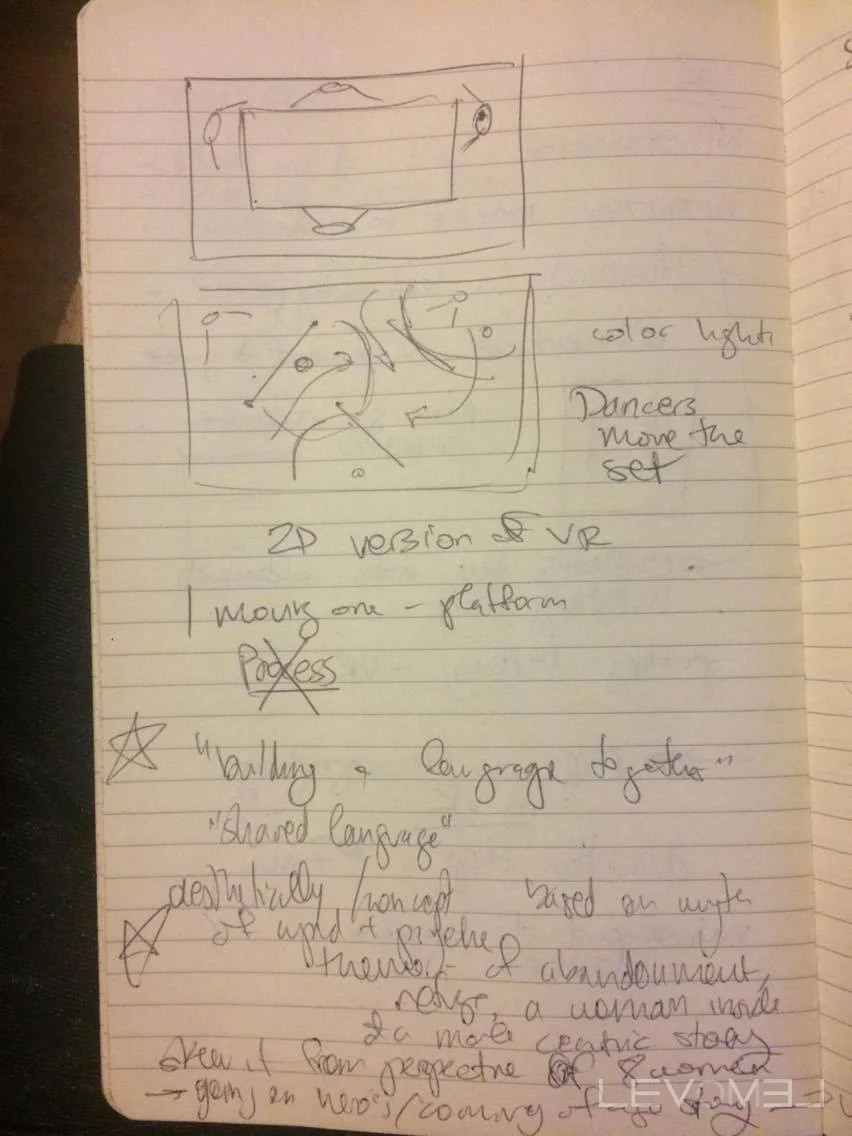 color lights
Dancers
move the
set
2D version of VR
1 moving one - platform
Process
"building a language together"
"shared language"
aesthetically / concept based on myth
of cupid + psyche
themes of abandonment,
refuge, a woman inside
of a male centric story
skew it from perspective of 8 women
→ going on hero's / coming of age story →
LEVOMEL